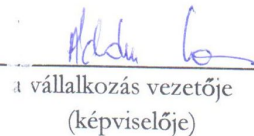 a vállalkozás vezetője
(képviselője)